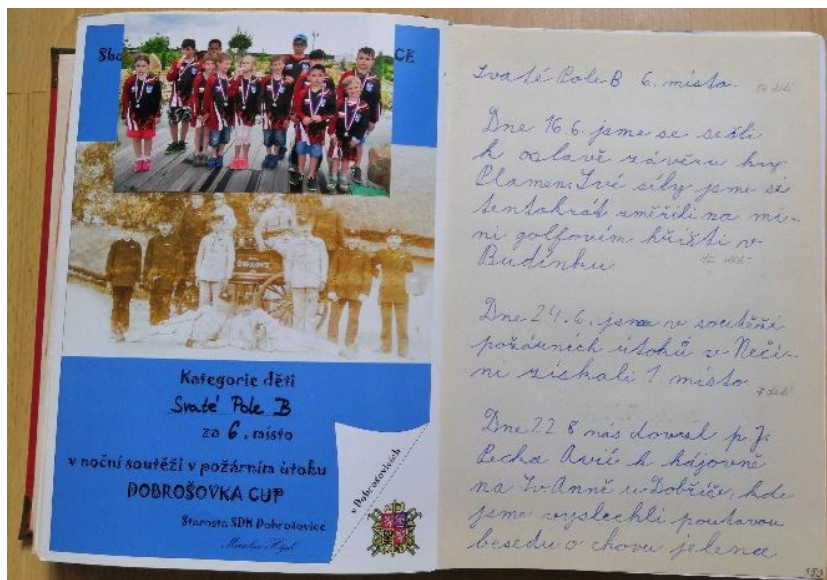 Sbo
CE
Kategorie děti
Svaté Pole B
za 6. místo
v noční soutěži v požárním útoku
DOBROŠOVKA CUP
Starosta SDH Dobrošovice
v Dobrošovicích
Svaté Pole B 6. místo.
Dne 16.6. jsme se sešli
k oslavě závěru hry
Plamen. Své síly jsme si
tentokrát změřili na mi-
ni golfovém hřišti v
Budínku
Dne 24.6. jsme v soutěži
požárních útoků v Neči-
ni získali 1. místo
7 dětí
Dne 22 8 nás dovezl p J.
Pecka Avií k hájovně
na Sv Anně u Dobříče, kde
jsme vyslechli poutavou
besedu o chovu jelena